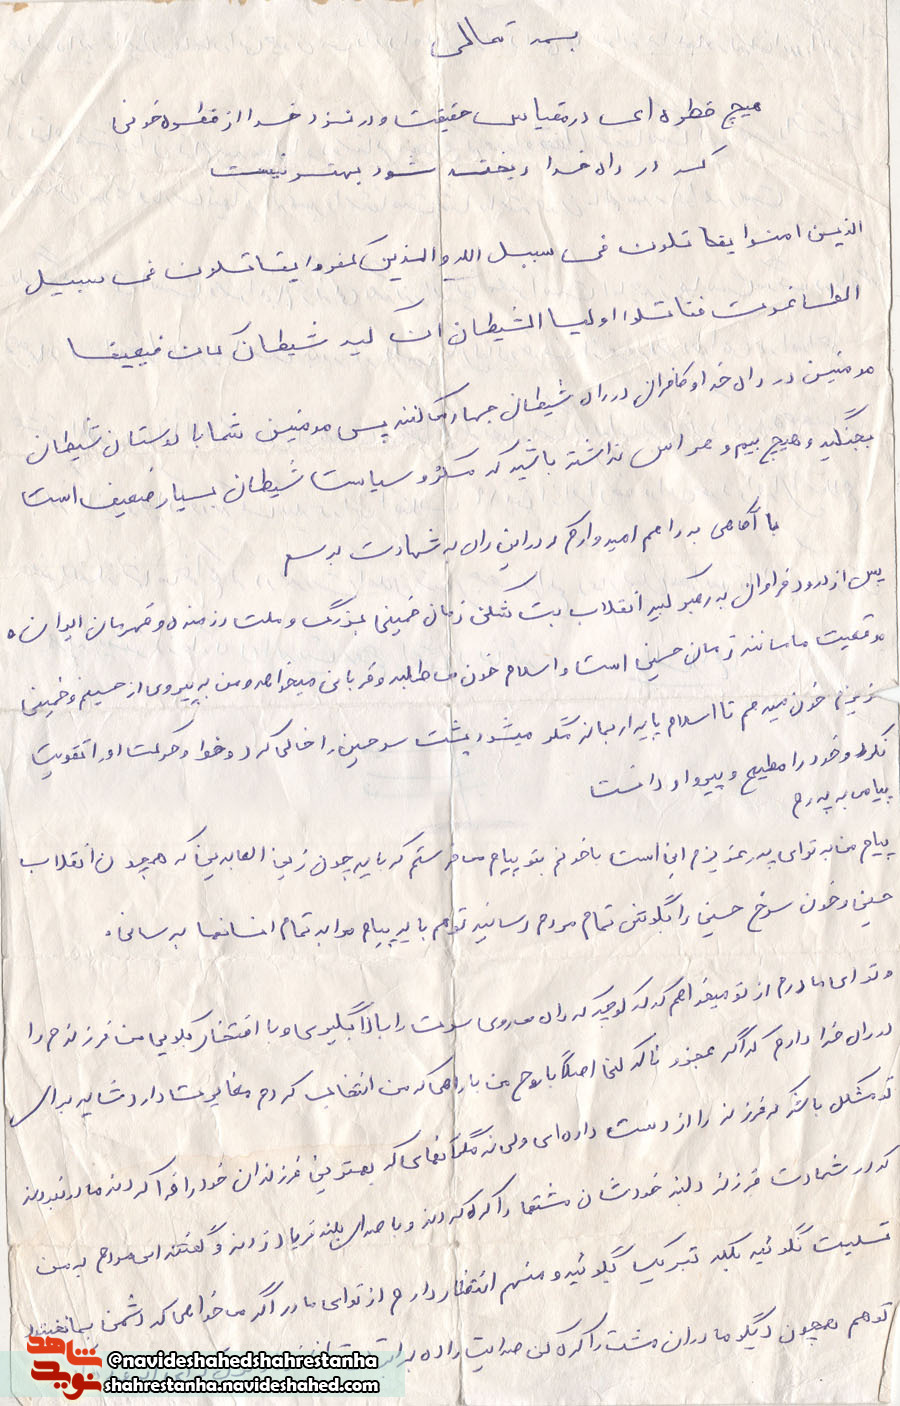 بسمه تعالی
هیچ قطره ای در مقیاس حقیقت و در نزد خدا از قطره خونی
که در راه خدا ریخته شود بهتر نیست
الذین امنوا یقاتلون فی سبیل الله والذین کفروا یقاتلون فی سبیل
الطاغوت فقاتلوا اولیا الشیطان ان کید شیطان کان ضعیفا
مومنین در راه خدا و کافران در راه شیطان جهاد می کنند پس مومنین شما با دوستان شیطان
بجنگید و هیچ بیم و هراس نداشته باشید که مکر و سیاست شیطان بسیار ضعیف است
با آگاهی به راهم امیدوارم که در این راه به شهادت برسم
پس از درود فراوان به رهبر کبیر انقلاب بت شکن زمان خمینی بزرگ و ملت رزمنده و قهرمان ایران
موقعیت ما مانند زمان حسین است و اسلام خون می طلبد و قربانی میخواهد و من به پیروی از حسین و خمینی
عزیزم خون میدهم تا اسلام پایدار بماند مگر میشود پشت سر حسین را خالی کرد و خود حرکت او را تقویت
نکرد و خود را مطیع و پیرو او دانست
پیامی به پدرم
پیام من به تو ای پدر عزیزم این است با خونم بتو پیام می فرستم که باید چون زین العابدین که همچون انقلاب
حسین و خون سرخ حسین را بگوش تمام مردم رسانید تو هم باید پیام مرا به تمام انسانها برسانی.
و تو ای مادرم از تو میخواهم که کوچه که راه روی سرت را بالا بگیری و با افتخار بگویی من فرزندم را
در راه خدا دادم که اگر عجز و ناله کنی اصلاً با روح من با راهی که من انتخاب کردم مغایرت دارد شاید برای
تو مشکل باشد که فرزند را از دست داده ای ولی نه مگر آنهای که بهترین فرزندان خود را فدا کردند مادر نبودند
که در شهادت فرزند دلبند خودشان مشتها را گره کردند و با صدای بلند فریاد زدند و گفتند ای مردم به من
تسلیت نگوئید بلکه تبریک بگوئید و منهم انتظار دارم از تو ای مادر اگر می خواهی که دشمن بما نخندد
تو هم همچون دیگر مادران مشت را گره کن صدایت را
شاهد
نوید
@navideshahedshahrestanha
shahrestanha.navideshahed.com